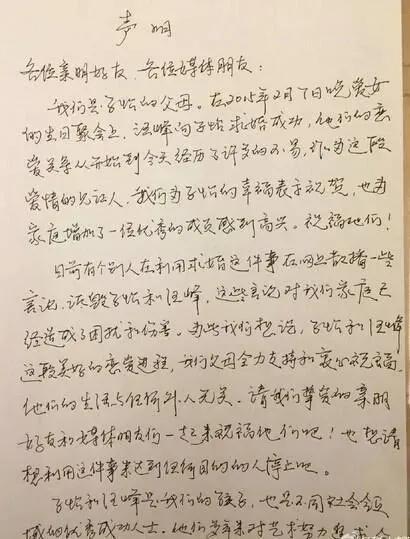 声明
各位亲朋好友、各位媒体朋友：
我们是子怡的父母。在2015年2月7日晚爱女
的生日聚会上，汪峰向子怡求婚成功，他们的恋
爱关系从开始到今天经历了许多的不易，作为这段
爱情的见证人，我们为子怡的幸福表示祝贺，也为
家庭增加了一位优秀的成员感到高兴。祝福他们！
目前有个别人在利用求婚这件事在网上散播一些
言论，诋毁子怡和汪峰，这些言论对我们家庭已
经造成了困扰和伤害。为此我们想说，子怡和汪峰
这段美好的恋爱进程，我们父母全力支持和衷心祝福，
他们的生活与任何外人无关。请我们挚爱的亲朋
好友和媒体朋友们一起来祝福他们吧！也想请
想利用这件事来达到任何目的的人停止吧。
子怡和汪峰是我们的孩子，也是不同社会领
域的优秀成功人士。他们多年来对艺术努力追求